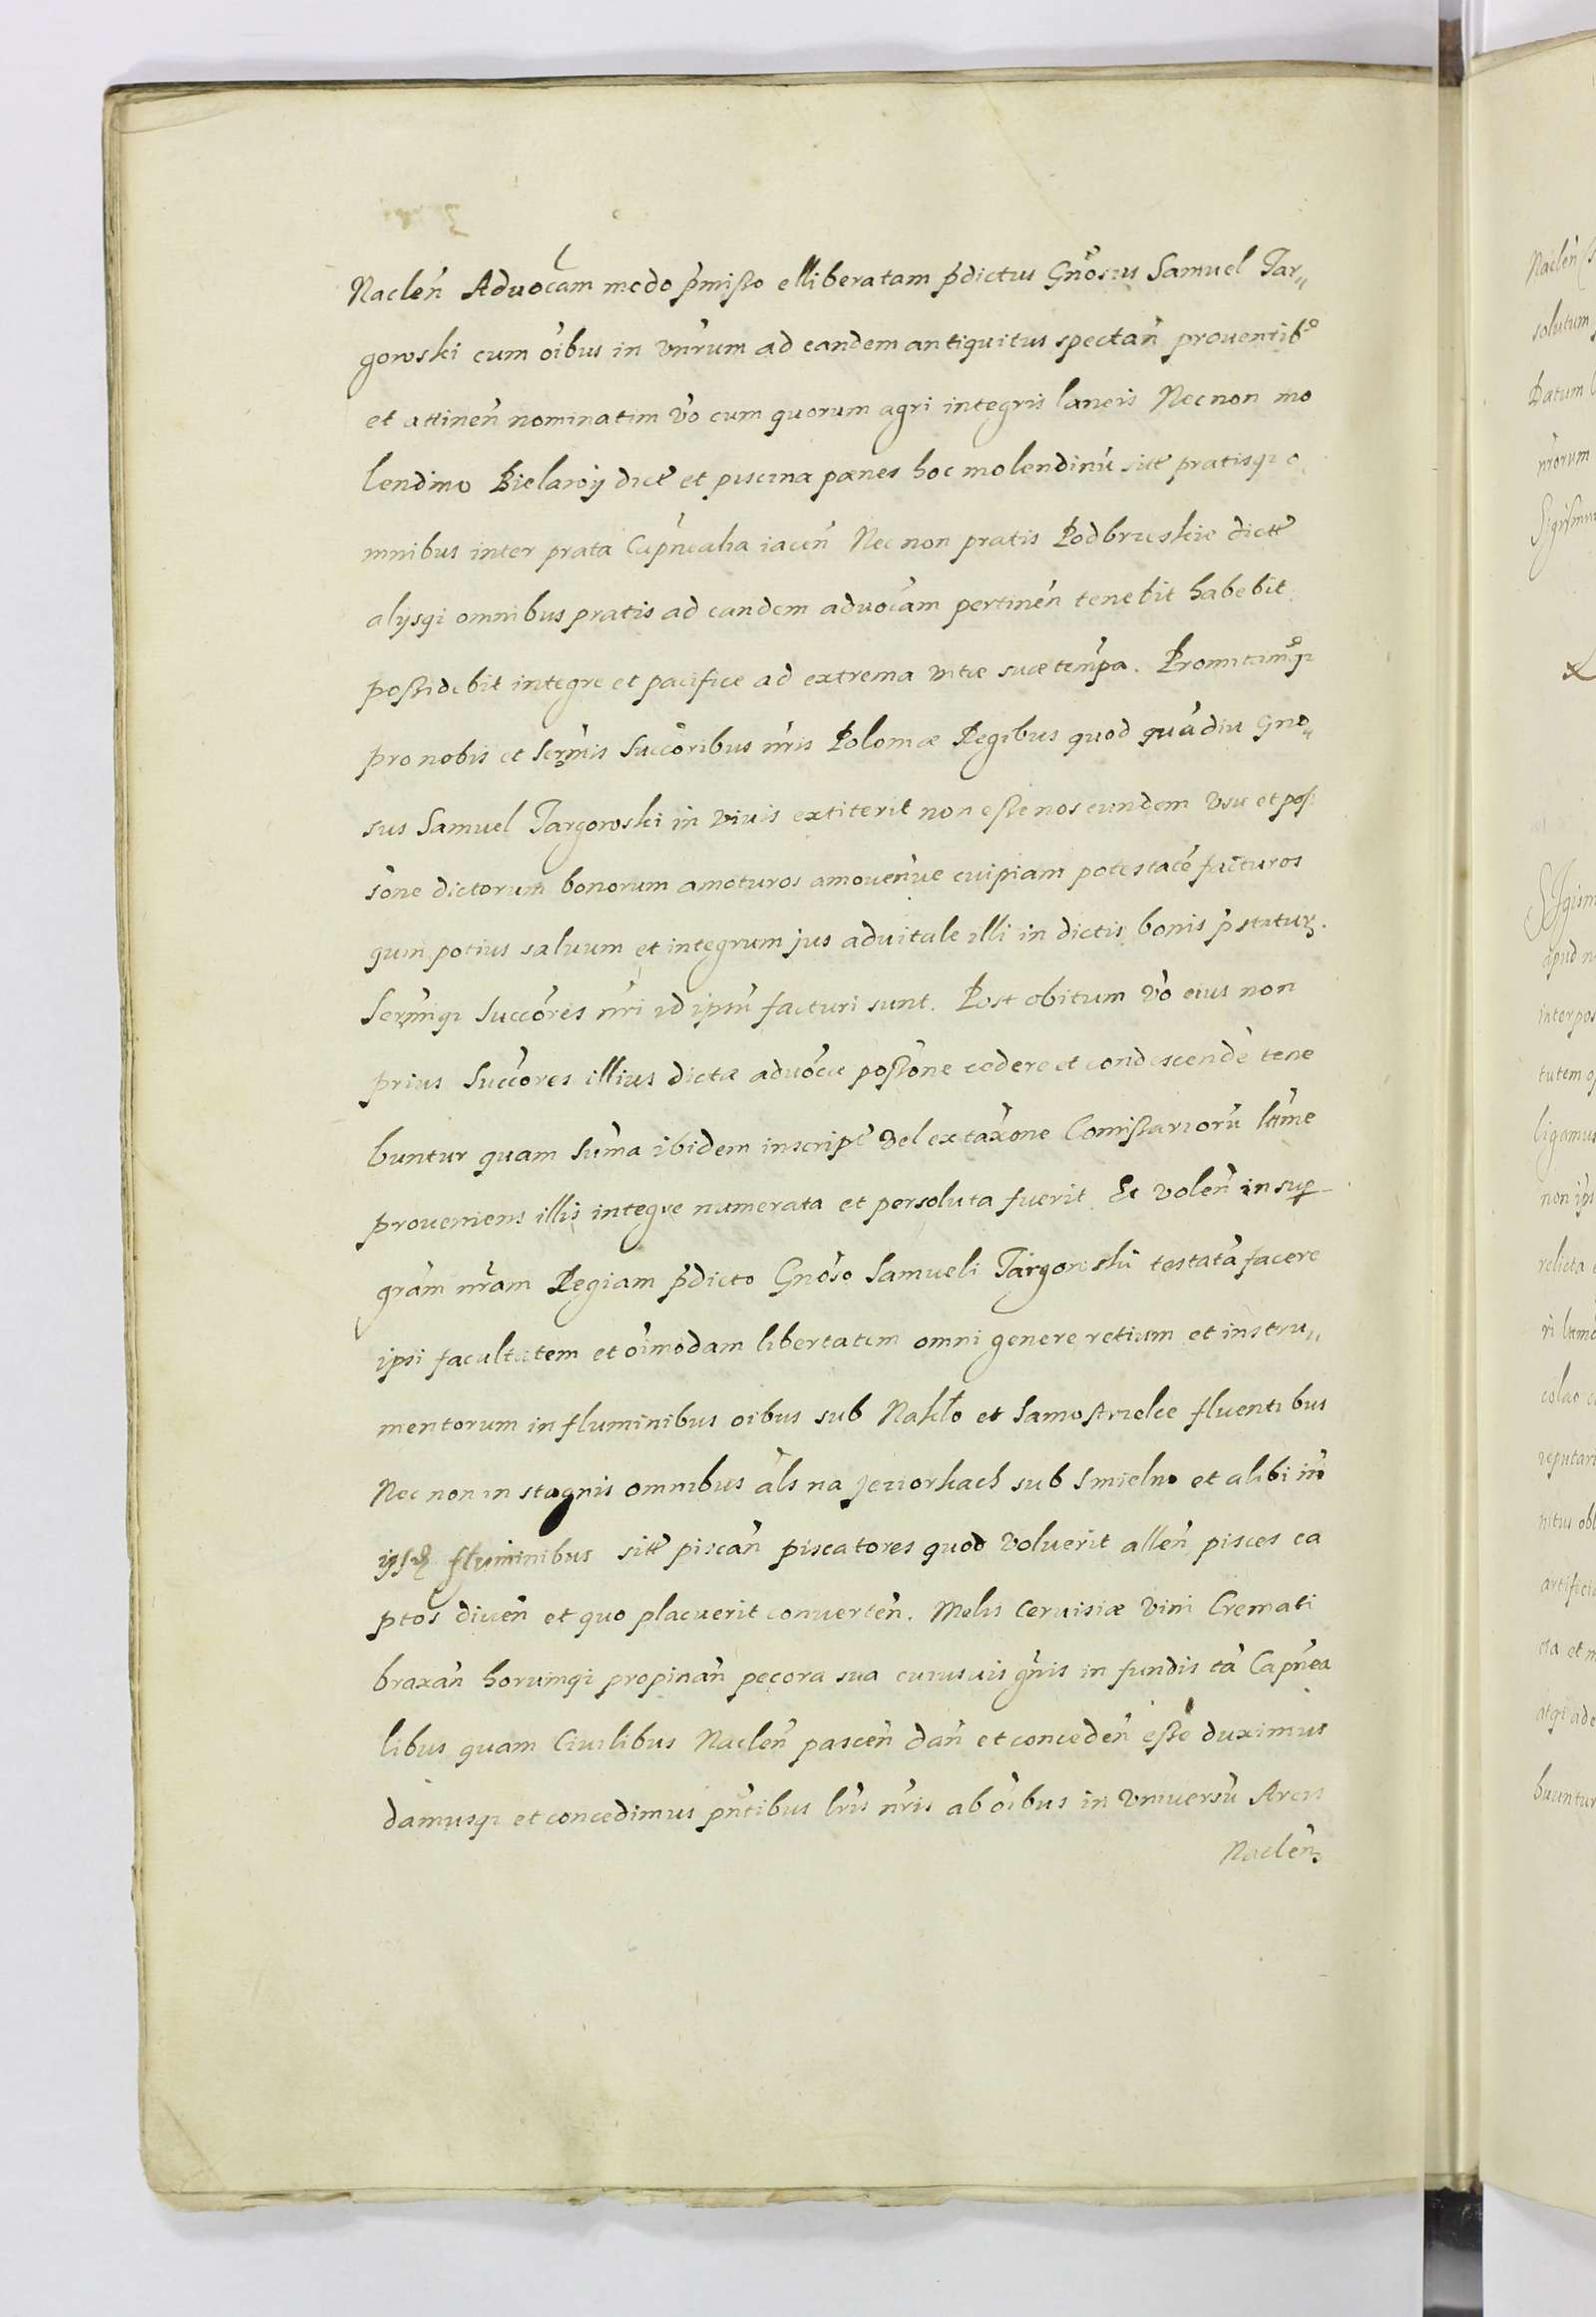 Naclen̄ Aduocam modo p̄misso elliberatam p̄dictus Gnōsus Samuel Tar„
gowski cum oībus in Vnr̄um ad eandem antiquitus spectan̄ prouentib⁹
et attinen̄ nominatim v̄o cum quorum agri integris laneis Nec non mo
lendino Bielawÿ dict̄ et piscina pænes hoc molendinū sitt̄ pratisqꝫ o
mnibus inter prata Cap̄nealia iacen̄ Nec non pratis Podbrzeskie dictt̄
alÿsqꝫ omnibus pratis ad eandem aduocām pertinen̄ tenebit habebit
possidebit integre et pacifice ad extrema vitæ suæ temp̄a. Promittim⁹qꝫ
pro nobis et Serm̄is Succōribus nr̄is Poloniæ Regibus quod quādiu Gno„
sus Samuel Targowski in viuis extiterit non esse nos eundem vsu et pos
sōne dictorum bonorum amoturos amouen̄ue cuipiam potestatē facturos
quin potius saluum et integrum jus aduitale illi in dictis bonis p̄staturꝫ.
Serm̄iqꝫ Succōres nr̄i id ipsū facturi sunt. Post obitum v̄o eius non
prius Succōres illius dictæ aduocæ possōne cedere et condescendē tene
buntur quam Sum̄a ibidem inscript̄ vel ex taxōne Comissariorū ltt̄me
proueniens illis integre numerata et persoluta fuerit. Et volen̄ insup
grām nr̄am Regiam p̄dicto Gnōso Samueli Targowski testatā facere
ipsi facultatem et oīmodam libertatem omni genere retium et instru„
mentorum in fluminibus oibus sub Nakło et Samostrzelce fluentibus
Nec non in stagnis omnibus als na Jeziorkach sub Smielno et alibi in
fluminibus sitt̄ piscan̄ piscatores quod voluerit allen̄ pisces ca
ptos diuen̄ et quo placuerit conuerten̄. Melis Ceruisiæ Vini Cremati
braxan̄ horumqꝫ propinan̄ pecora sua cuiusuis gn̄is in fundis tā Cap̄nea
libus quam Ciuilibus Naclen̄ pascen̄ dan̄ et conceden̄ esse duximus
damusqꝫ et concedimus pn̄tibus lr̄is nr̄is ab oībus in Vniuersū Arcis
Naclen̄